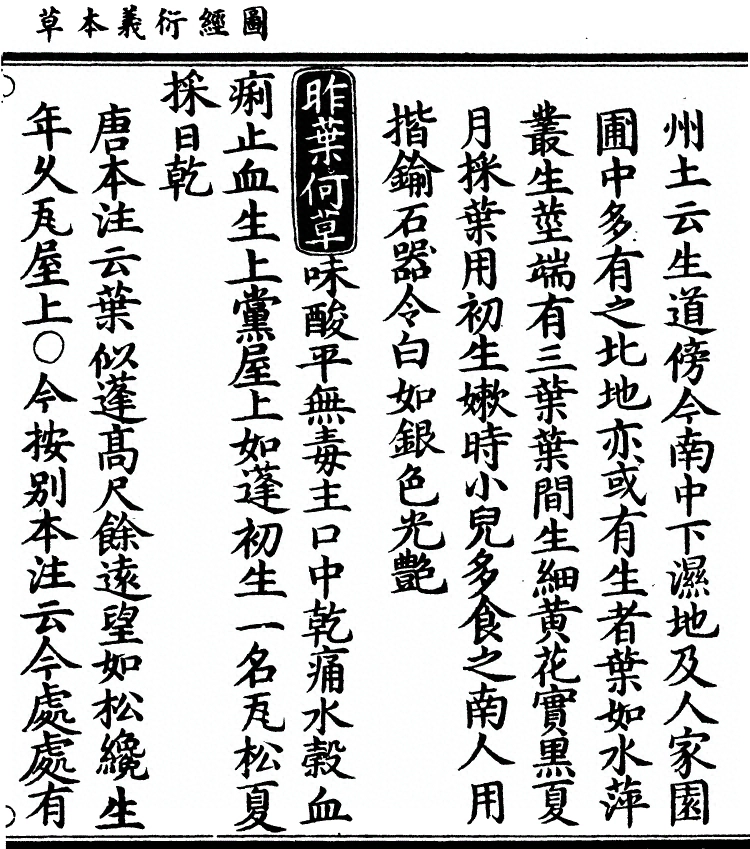 圖經衍義本草
州土云生道傍今南中下濕地及人家園
圃中多有之北地亦或有生者葉如水萍
叢生莖端有三葉葉間生細黄花實黑夏
月採葉用初生嫰時小兒多食之南人用
揩鍮石器令白如銀色光艷
昨葉何草味酸平無毒主口中乾痛水榖血
痢止血生上黨屋上如蓬初生一名瓦松夏
採日乾
唐本注云葉似蓬高尺餘遠望如松纔生
年久瓦屋上○今按别本注云今處處有